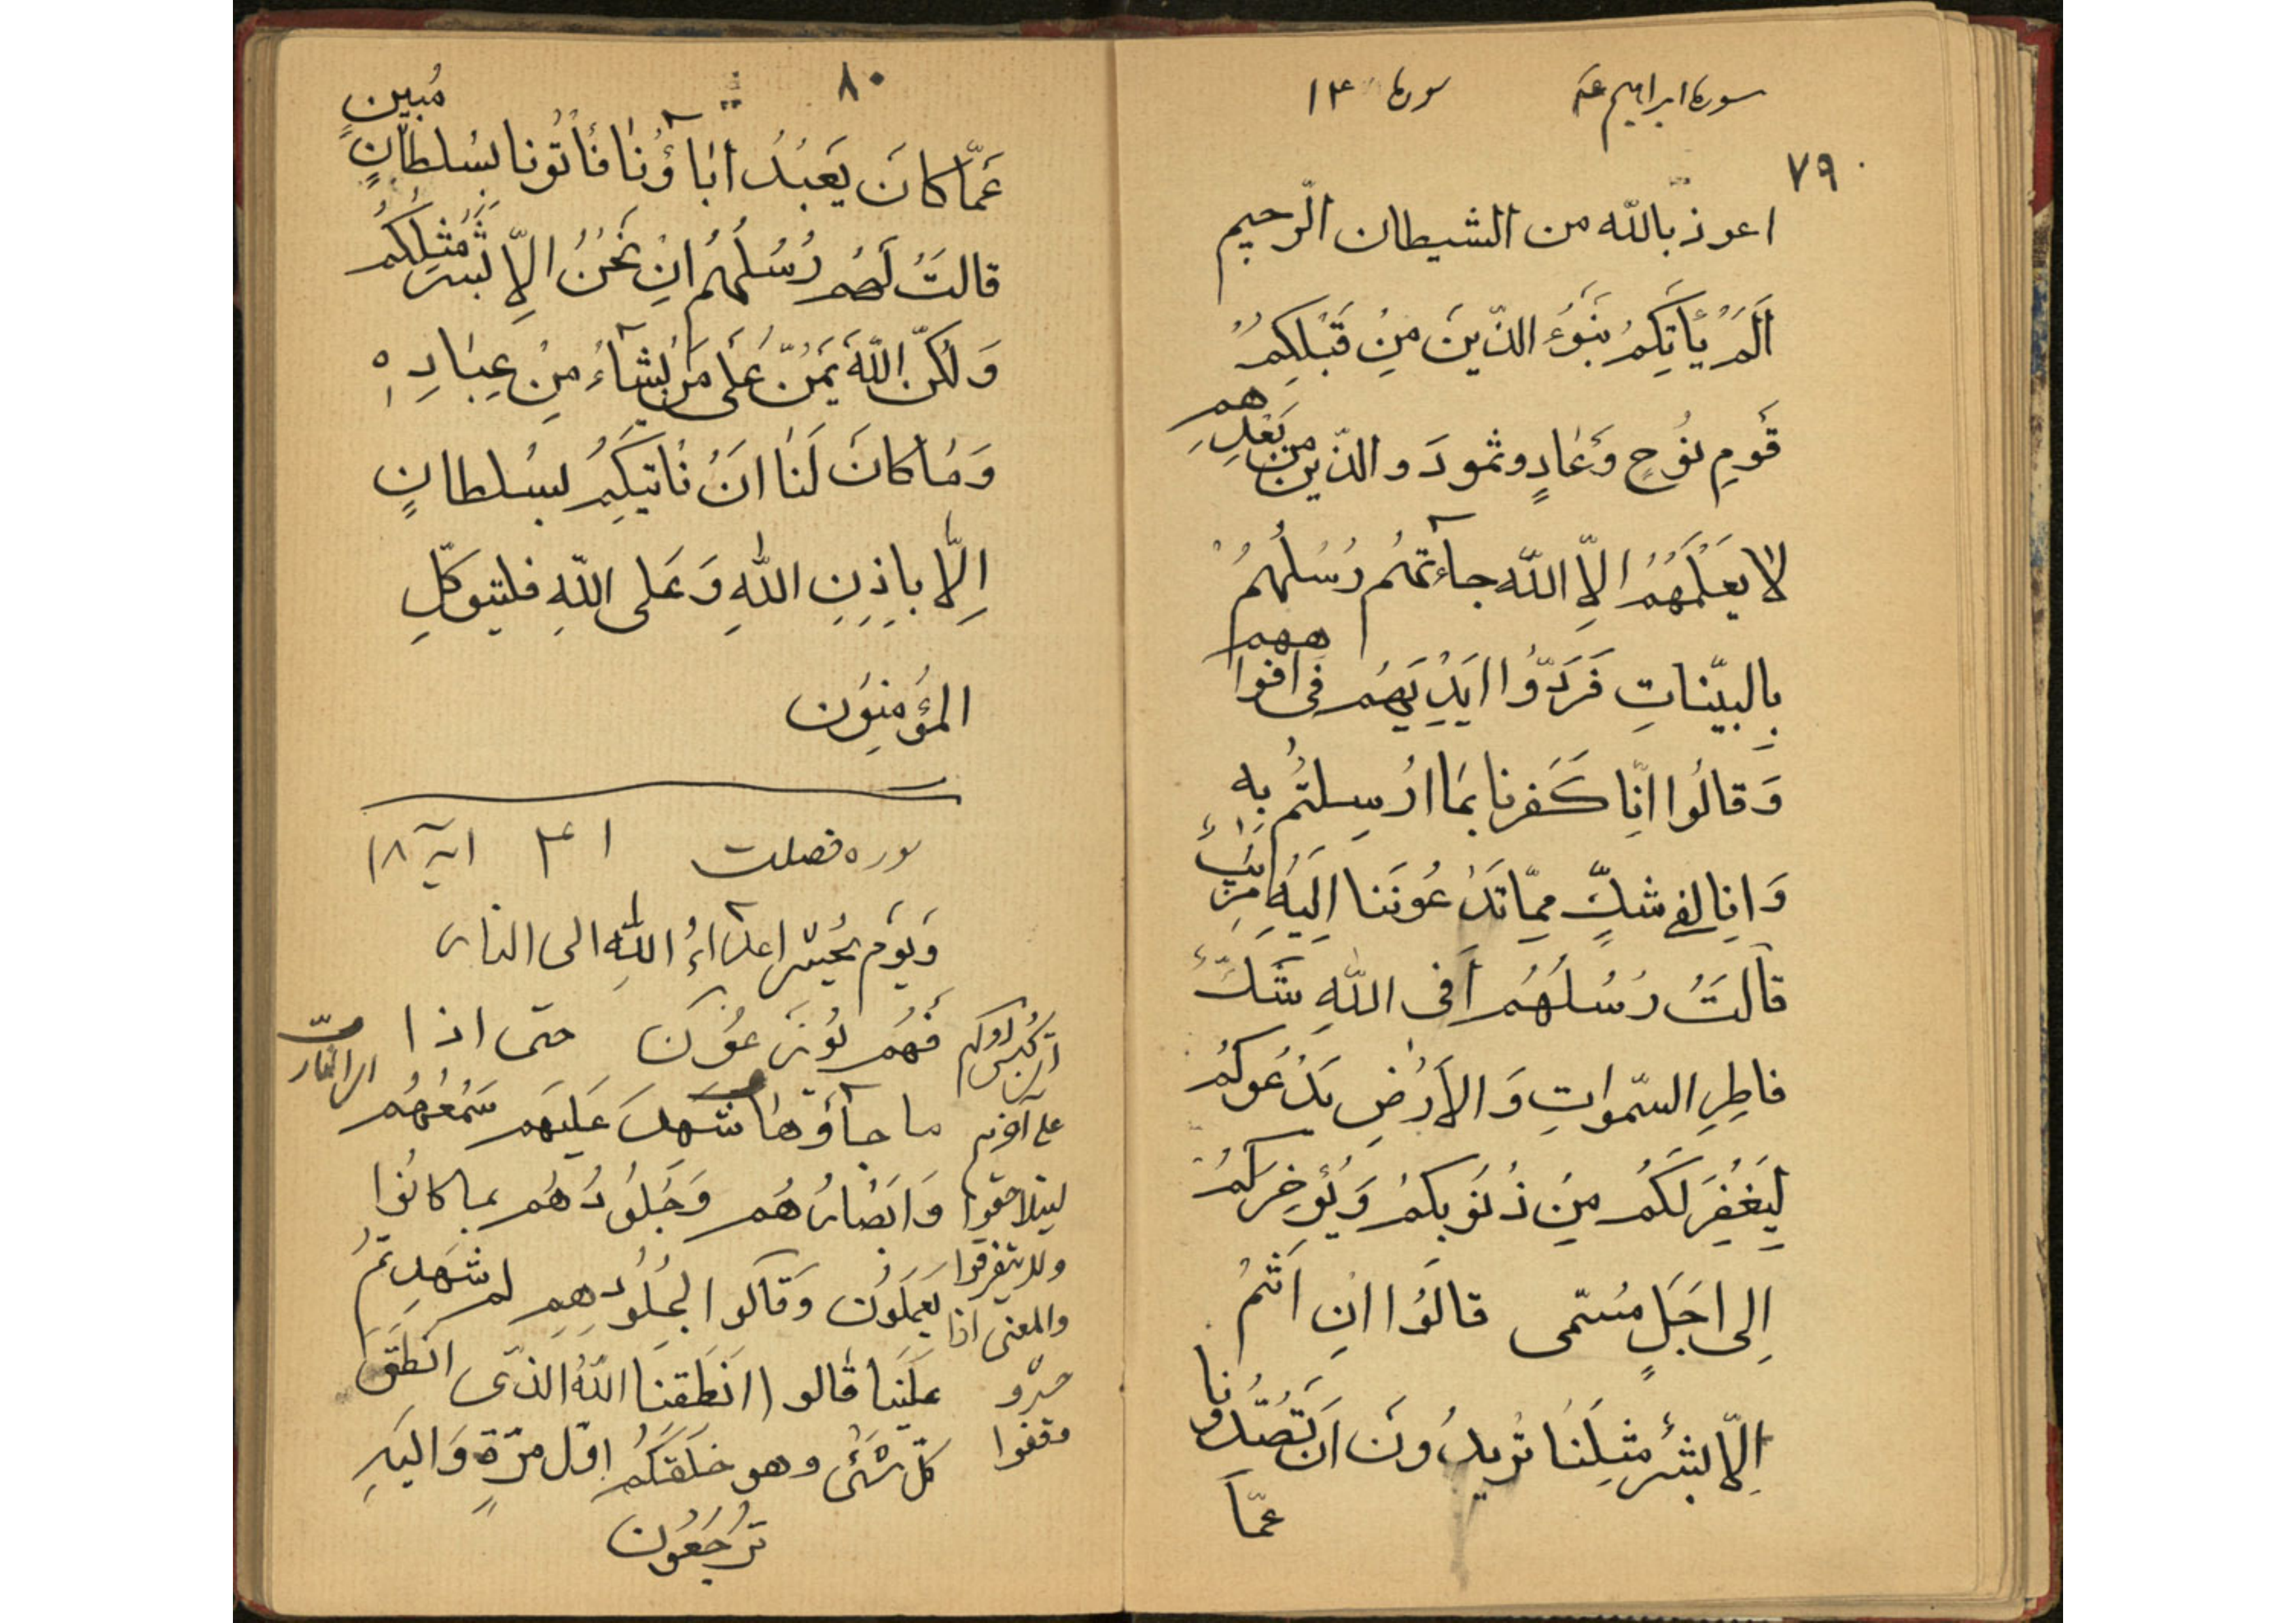 سوره ابراهیم ع سوره ١٤
٧٩
اعوذ بالله من الشیطان الرّجیم
اَلَمْ یَأتِکُمْ نَبَؤُ الذّینَ مِنْ قَبْلِکُمْ
قَومِ نُوُحٍ وَعٰادٍ وثمودَ و الذّین مِن بَعْدِهم
لا یَعْلَمُهُمْ اِلاّ اللّه جآءتهُم رُسُلُهُمْ
بِالبیّناتِ فَرَدّوُا اَیْدِیَهُم فی افواههم
وَ قالُوا اِنّا کَفَرنا بمَا اُرْسِلتُم بِه
وَ اِنا لفی شکٍّ ممّا تَدْعُونَنا اِلَیْهِ مُریبٍ
قالَتْ رُسُلُهُم اَفی اللّهِ شَکٌّ
فاطِرِ السّمواتِ وَ الاَرْضِ یَدْعُوکُمْ
لِیَغْفِرَ لَکُم مِنْ ذُنُوبِکُمْ وَ یُؤَخِرَکُمْ
اِلی اَجَلٍ مُسَمّی قالَوُا اِنْ اَنْتُمْ
اِلّا بَشَرٌ مِثلُنٰا تُریدُونَ اَن تَصُدّونا
عَمّا
٨٠
عَمّا کانَ یَعْبُدُ اٰبٰآؤُنٰا فَأْتُونا بِسُلطانٍ مُبینٍ
قالَتْ لَهُم رُسُلُهُم اِنْ نَحْنُ اِلاّ بَشَرٌ مِثلُکُم
وَ لٰکنّ اللّهَ یَمُنّ عَلَی مَن یَشآءُ مِنْ عِبٰادِهِ
وَ مٰا کانَ لَنٰا اَنْ نَأتیَکُم بِسُلطانٍ
اِلّا بِاِذنِ اللّٰهِ وَ عَلی اللّهِ فلیتوکّلِ
المؤُمِنوُن
سوره فصلت ٤١ آیه ١٨
وَ یَوْمَ یُحشر اعدآءُ اللّٰهِ الی النار
فَهُم یُوزَعوُنَ حتی اذا
ما جآؤها شَهِدَ عَلَیهَم سَمْعُهُم
وَ اَبْصٰارُهُم وَ جُلُودُهُم بما کانوُا
یَعمَلوُن وَ قالوُا لِجُلُودِهِم لم شَهِدتُم
عَلَیْنا قٰالو ا انَطَقنَا اللّهُ الذّی انطَقَ
کلّ شَئی وهو خلَقَکُم اوّل مرّةٍ وَ الیَهِ
تُرْجَعُون
لیتلاحقوا
والمعنی اذا
وقفوا